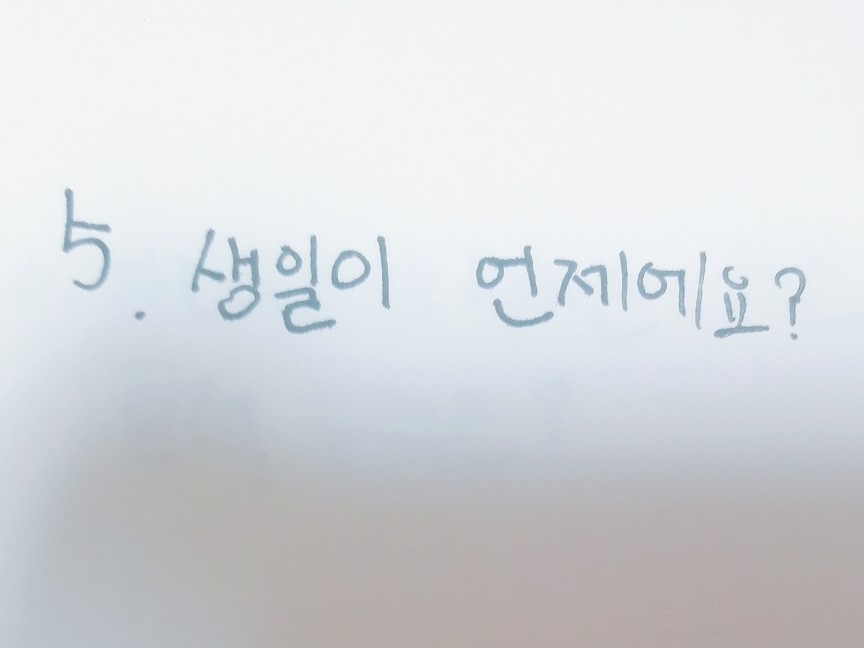 5. 생일이 언제에요?